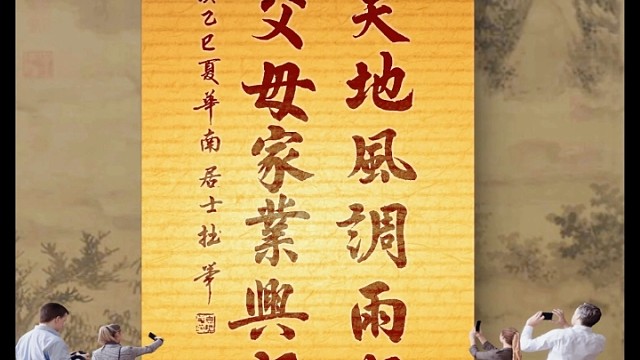 天地風調雨
父母家業興
乙巳夏華南居士拙筆